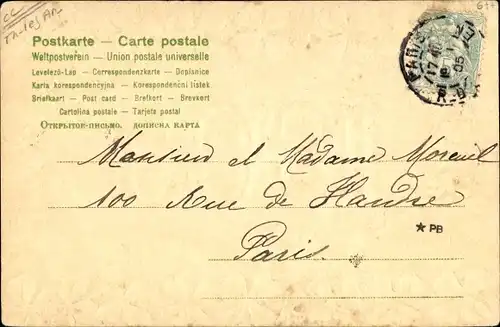 Postkarte — Carte postale
Weltpostverein — Union postale universelle
Levelező-Lap — Correspondenzkarte — Dopisnice
Karta korespondencyjna — Korespondenční lístek
Briefkaart — Post card — Brefkort — Brevkort
Cartolina postale — Tarjeta postal
Открытое-письмо. дописна карта
PARIS
Monsieur et Madame Moreuil
100 Rue de Flandre
★ PB
Paris.